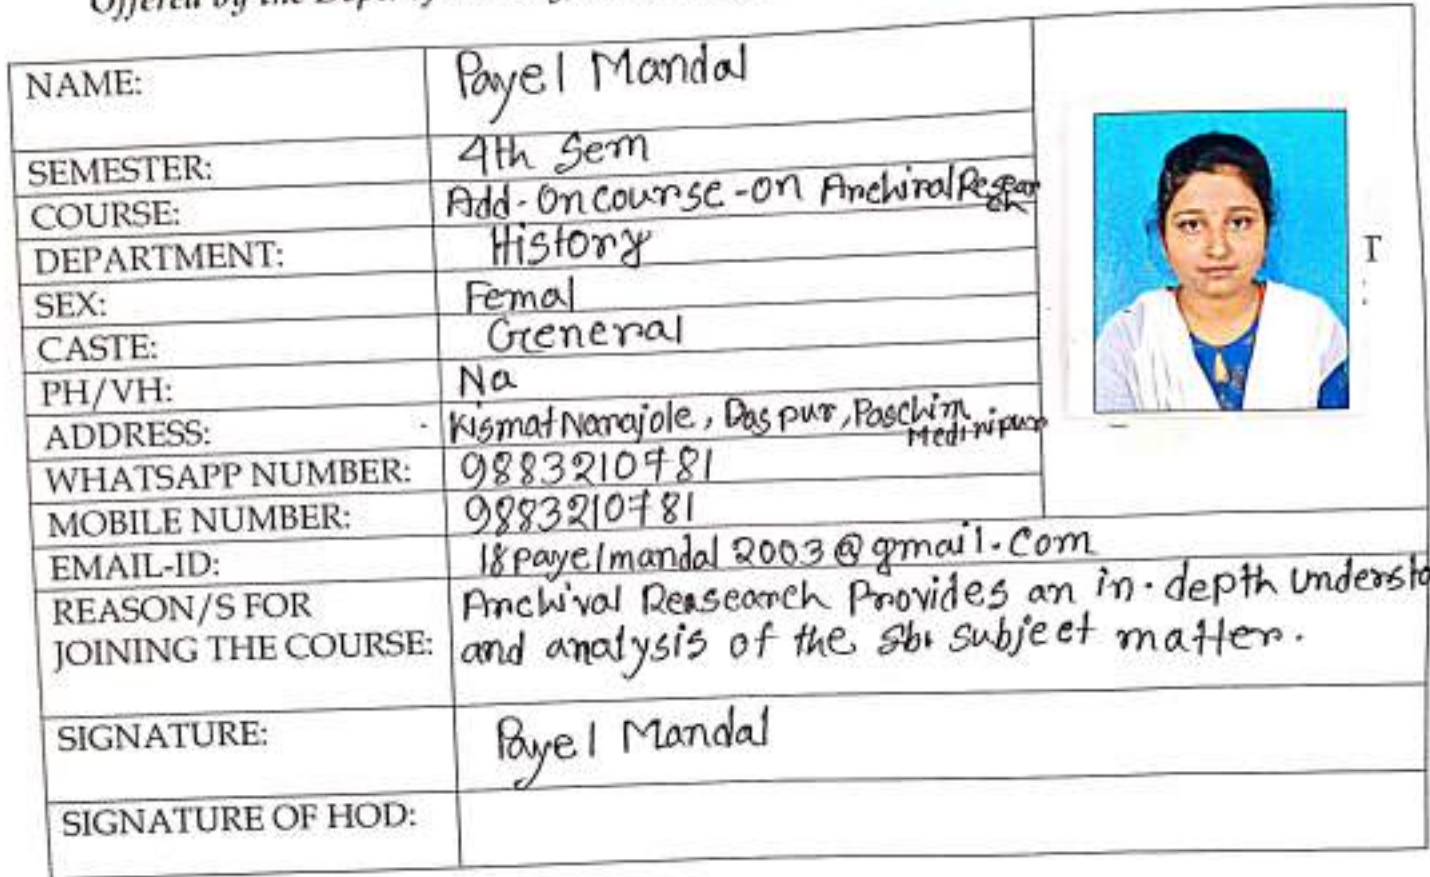 Offered by the
NAME: Payel Mandal
SEMESTER: 4th Sem
COURSE: Add-On course-on Archival Research
DEPARTMENT: History
SEX: Femal
CASTE: General
PH/VH: Na
ADDRESS: Kismat Narajole, Daspur, Paschim Medinipur
WHATSAPP NUMBER: 9883210781
MOBILE NUMBER: 9883210781
EMAIL-ID: 18payelmandal2003@gmail.com
REASON/S FOR Archival Reasearch Provides an in-depth understa
JOINING THE COURSE: and analysis of the subject matter.
SIGNATURE: Payel Mandal
SIGNATURE OF HOD: